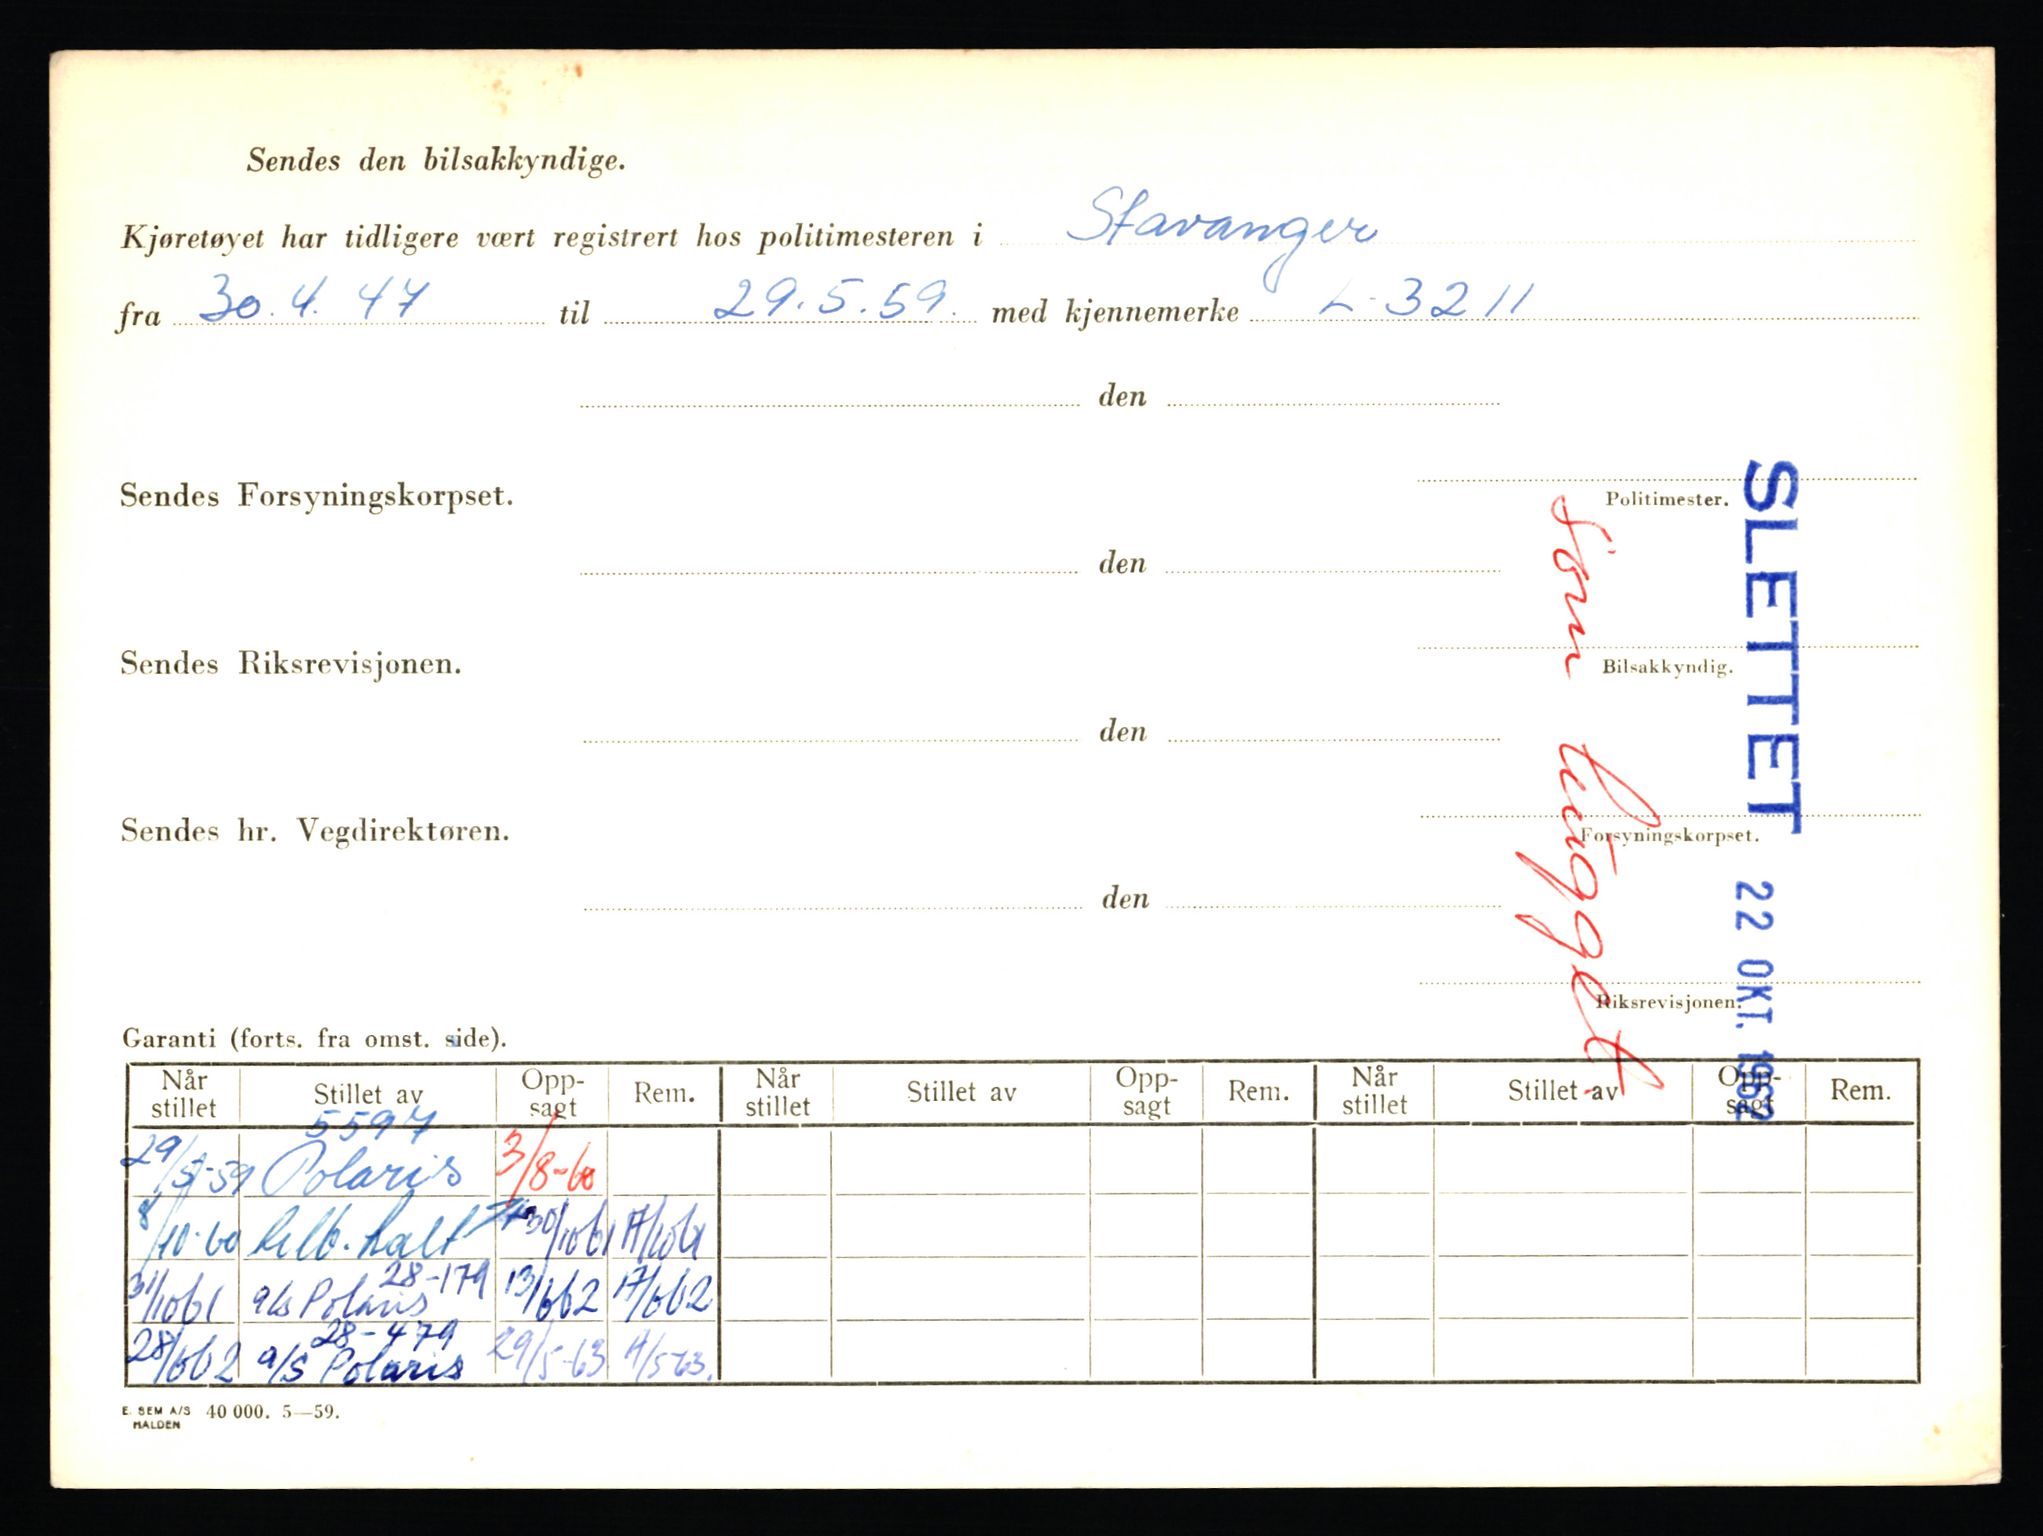 Sendes den bilsakkyndige.
Kjøretøyet har tidligere vært registrert hos politimesteren i Stavanger
fra 30.4.47 til 29.5.59. med kjennemerke L-3211
den
Politimester.
Sendes Forsyningskorpset.
den
Bilsakkyndig.
Sendes Riksrevisjonen.
den
Forsyningskorpset.
Sendes hr. Vegdirektøren.
den
Riksrevisjonen.
SLETTET 22 OKT. 1962
Som hugget
Garanti (forts. fra omst. side).
Når stillet Stillet av Opp-sagt Rem. Når stillet Stillet av Opp-sagt Rem. Når stillet Stillet av Opp-sagt Rem.
5597
29/5-59 Polaris 3/8-60
8/10-60 30/1061 17/1061
28-179
31/1061 a/s Polaris 13/662 17/662
28-479
28/662 a/s Polaris 29/5-63 14/5-63.
E. SEM A/S HALDEN 40 000. 5—59.